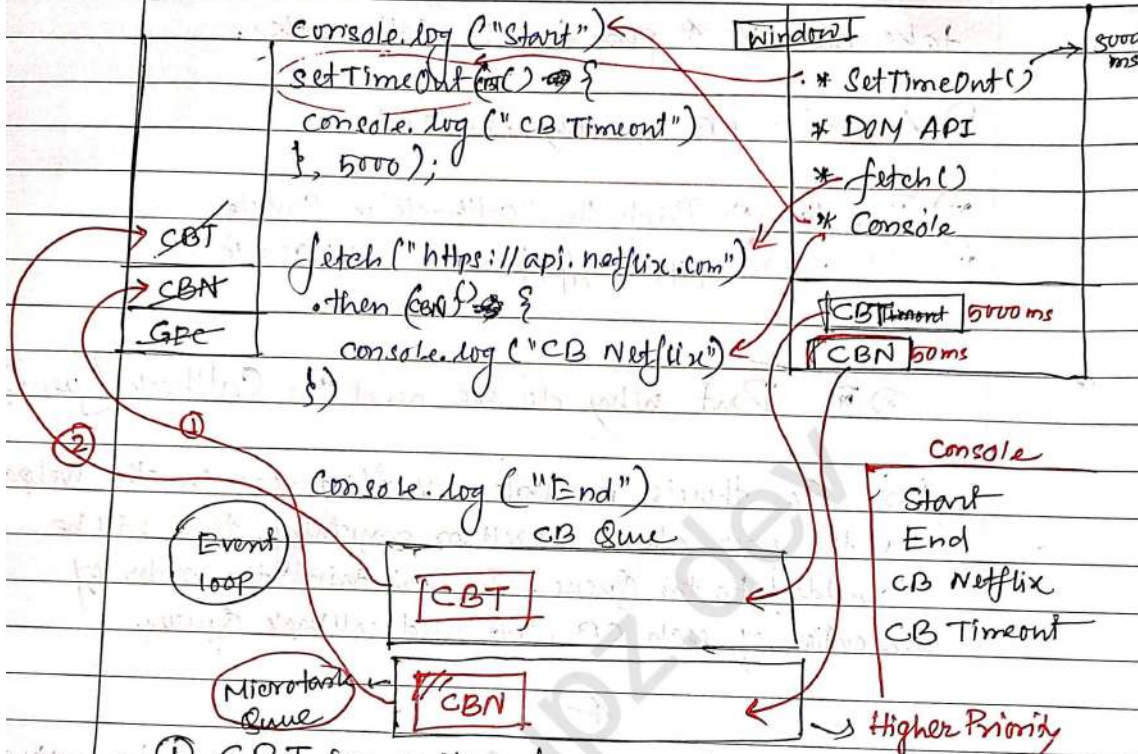 console.log ("Start")
setTimeOut (CBT() {
console.log ("CB Timeout")
}, 5000);
fetch ("https://api.netflix.com")
.then (CBN() {
console.log ("CB Netflix")
})
Console.log ("End")
Window
* SetTimeOut()
5000
ms
* DOM API
* fetch()
* Console
CBTimeout 5000 ms
CBN 50ms
CBT
CBN
GEC
①
②
Event
loop
CB Queue
CBT
Microtask
Queue
CBN
Higher Priority
Console
Start
End
CB Netflix
CB Timeout
① CBT